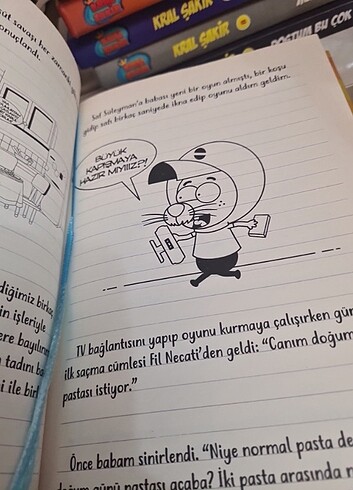 KRAL ŞAKİR
KRAL ŞAKİR
KRAL ŞAKİR
DOSTUM BU ÇOK
üt savaşı her zaman
onuçlandı.
Saf Süleyman'a babası yeni bir oyun almıştı, bir koşu
gidip safı birkaç saniyede ikna edip oyunu aldım geldim.
BÜYÜK
KAPIŞMAYA
HAZIR MIYIIIZ?!
diğimiz birkaç
in işleriyle
ere bayılırım
tadını
ile
TV bağlantısını yapıp oyunu kurmaya çalışırken gün
ilk saçma cümlesi Fil Necati'den geldi: "Canım doğum
pastası istiyor."
Önce babam sinirlendi. "Niye normal pasta de
doğum günü pastası acaba? İki pasta arasında n